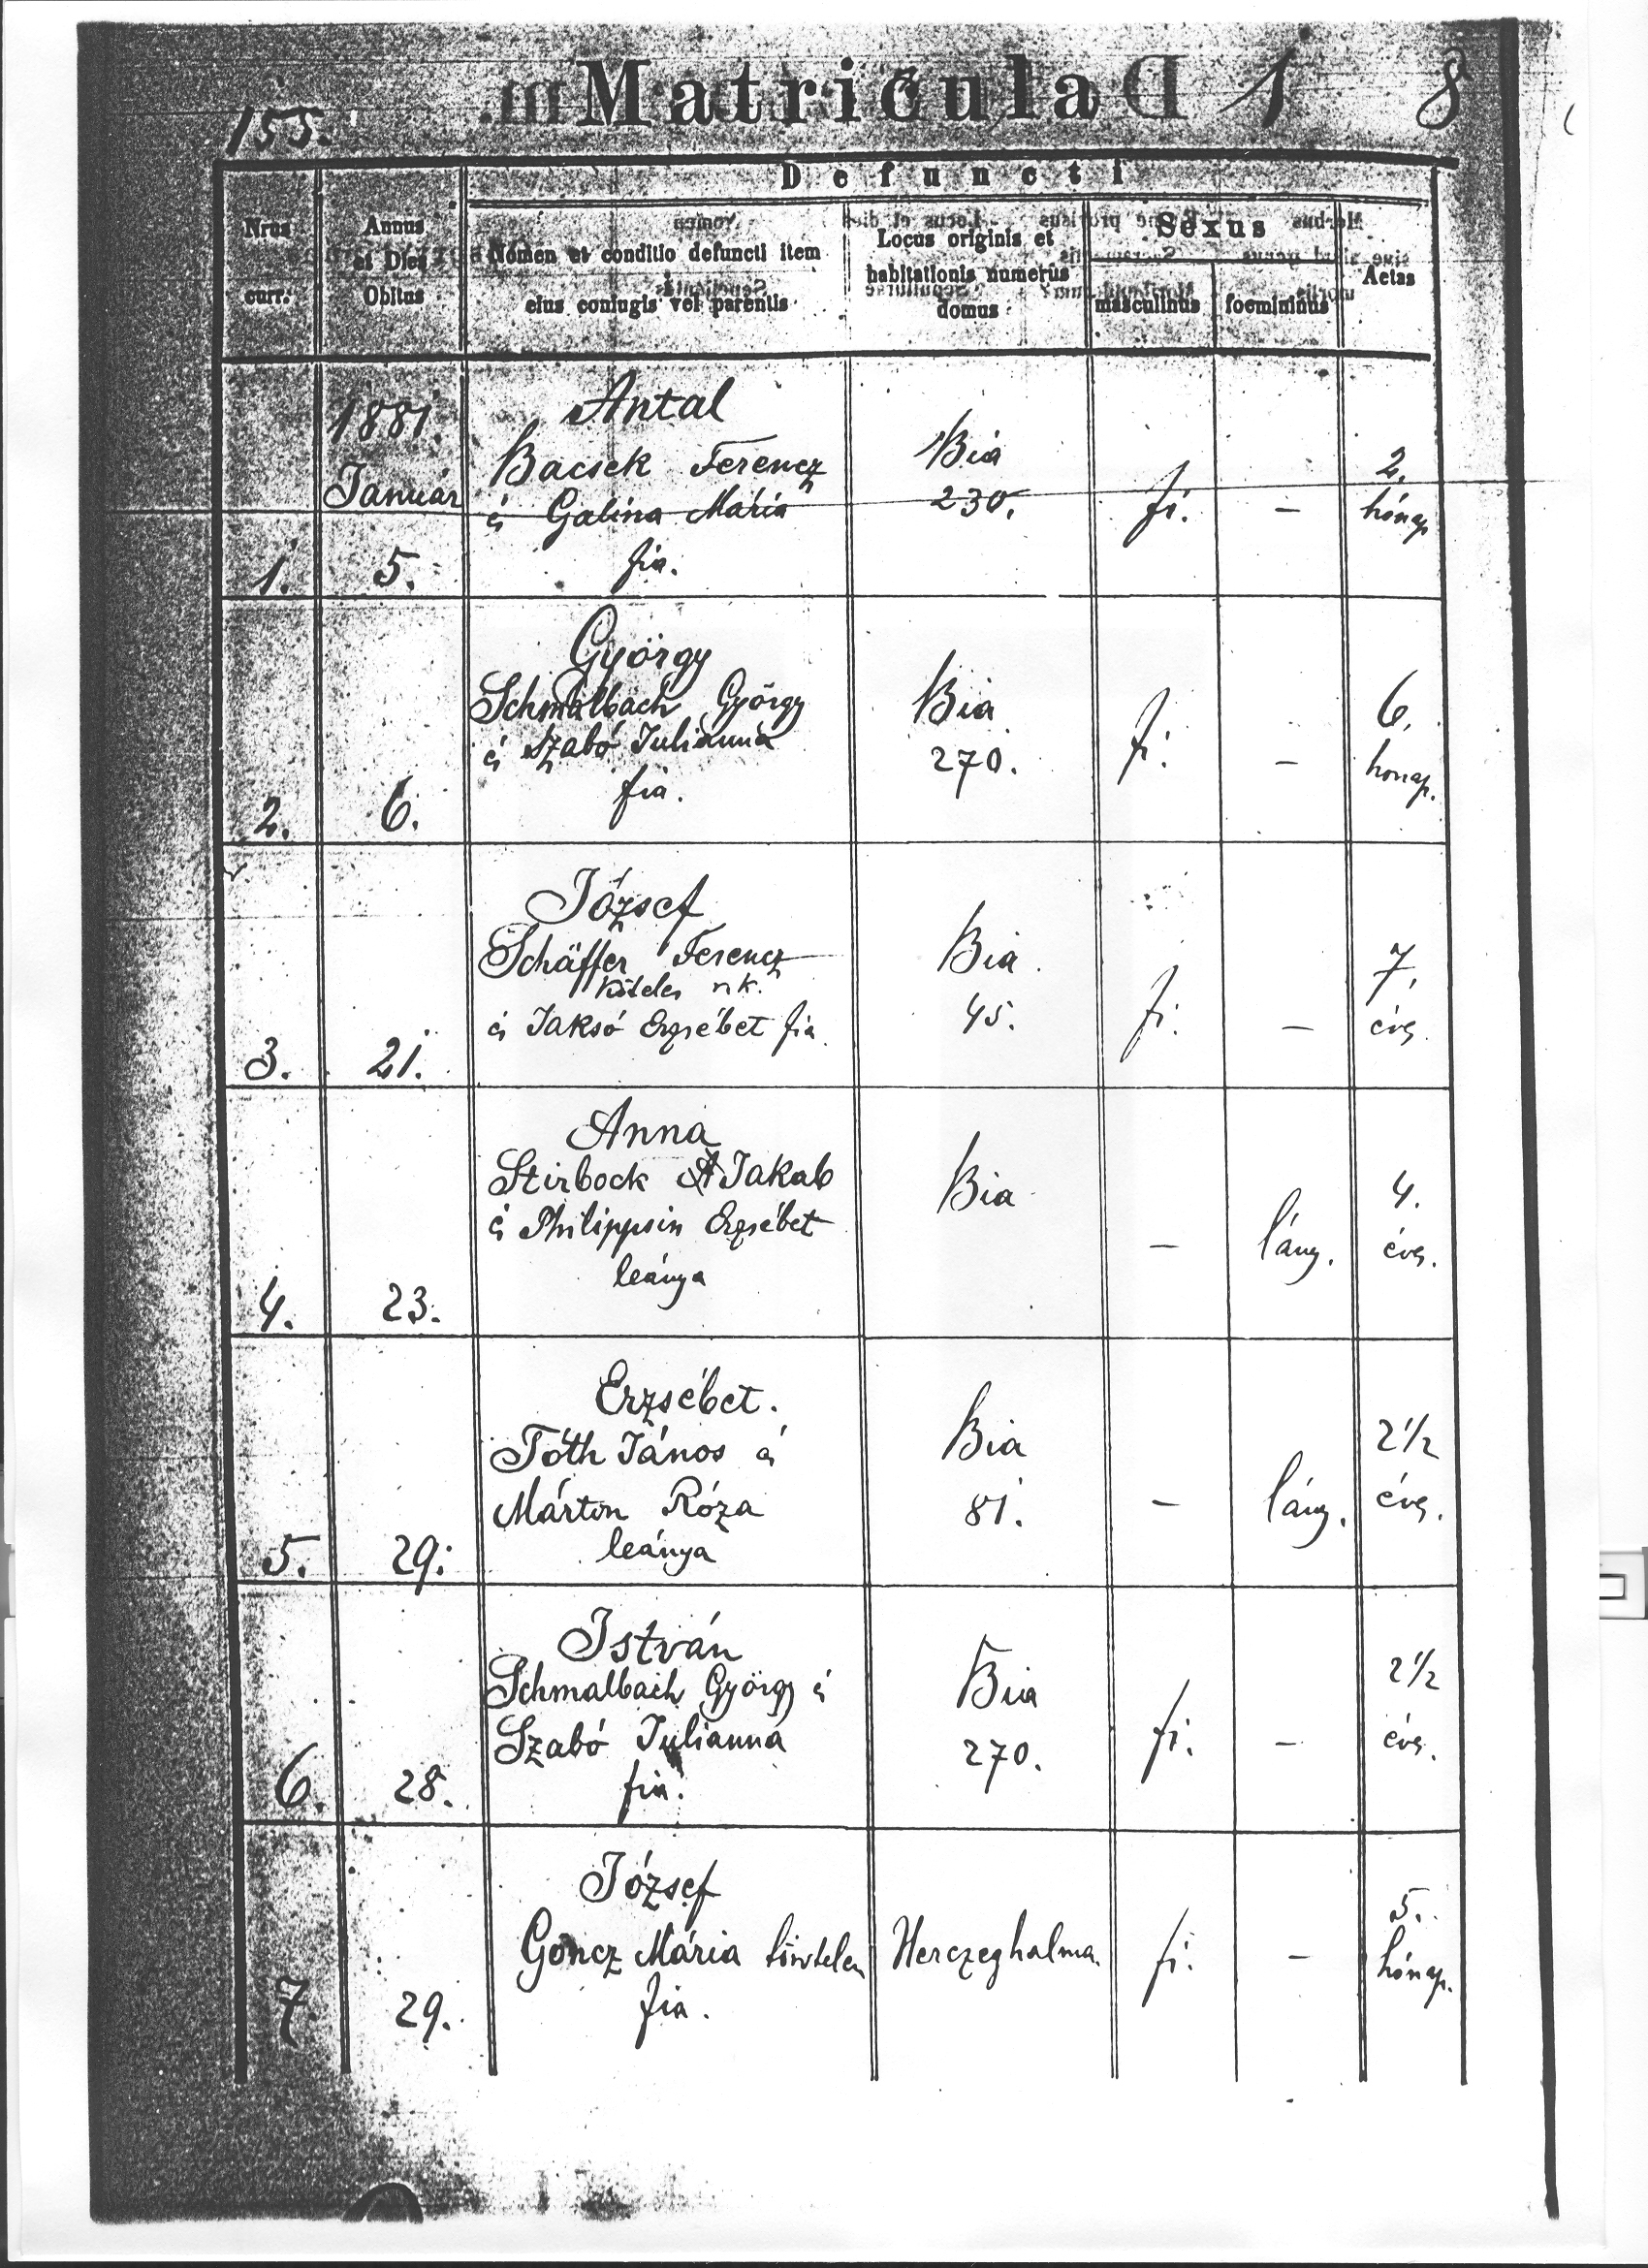 Matricula D 1 8
155.
Defuncti
Nrus curr.
Annus et Dies Obitus
Nomen et conditio defuncti item eius coniugis vel parentis
Locus originis et habitationis numerus domus
Sexus
masculinus
foemininus
Aetas
1881
Január
1. 5.
Antal
Bacsek Ferencz
és Galina Mária
fia.
Bia
230.
fi.
–
2.
hónap
2. 6.
György
Schmalbach György
és Szabó Julianna
fia.
Bia
270.
fi.
–
6.
honap.
3. 21.
József
Schäffer Ferencz
köteles r. k.
és Jaksó Erzsébet fia.
Bia
45.
fi.
–
7.
éves
4. 23.
Anna
Stirbock Jakab
és Philippsin Erzsébet
leánya
Bia
–
lány.
4.
éves.
5. 29.
Erzsébet.
Tóth János és
Márton Róza
leánya
Bia
81.
–
lány.
2 1/2
éves.
6. 28.
István
Schmalbach György és
Szabó Julianna
fia.
Bia
270.
fi.
–
2 1/2
éves.
7 29.
József
Göncz Mária törvtelen
fia.
Herczeghalma.
fi.
–
5.
hónap.